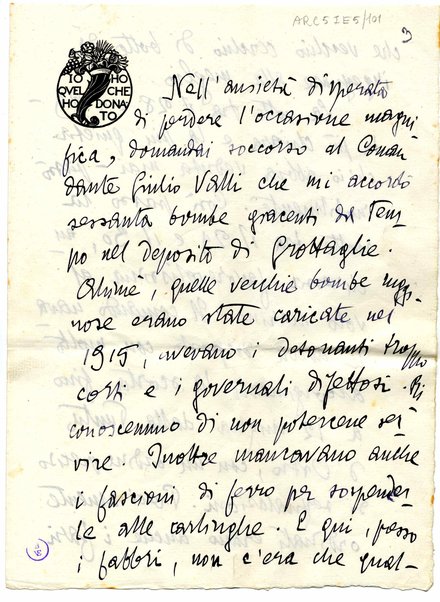 ARC 5 I E 5/101
3
IO HO
QVEL CHE
HO DONA
TO
Nell'ansietà disperata
di perdere l'occasione magni
fica, domandai soccorso al Coman
dante Giulio Valli che mi accordò
sessanta bombe giacenti da tem-
po nel deposito di Grottaglie.
Ahimè, quelle vecchie bombe
nose erano state caricate nel
1915, avevano i detonanti troppo
corti e i governali difettosi. Ri
conoscemmo di non potercene ser
vire. Inoltre mancavano anche
i fascioni di ferro per sospender
le alle carlinghe. E qui, presso
i fabbri, non c'era che qual-